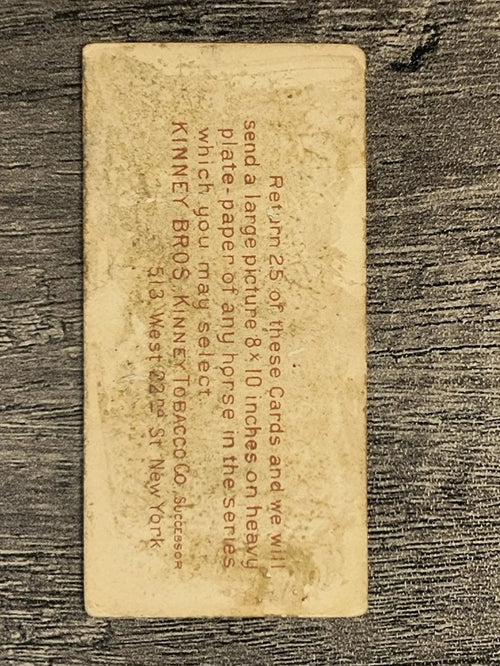 Return 25 of these Cards and we will
send a large picture 8 x 10 inches on heavy
plate-paper of any horse in the series
which you may select.
KINNEY BROS. KINNEY TOBACCO CO. SUCCESSOR
513 West 22nd St. New York